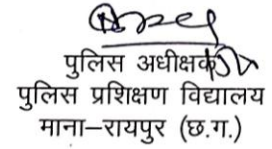 पुलिस अधीक्षक
पुलिस प्रशिक्षण विद्यालय
माना–रायपुर (छ.ग.)